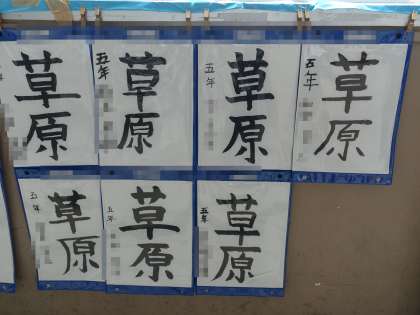 草原
五年
草原
五年
草原
五年
草原
五年
草原
五年
草原
五年
草原
五年